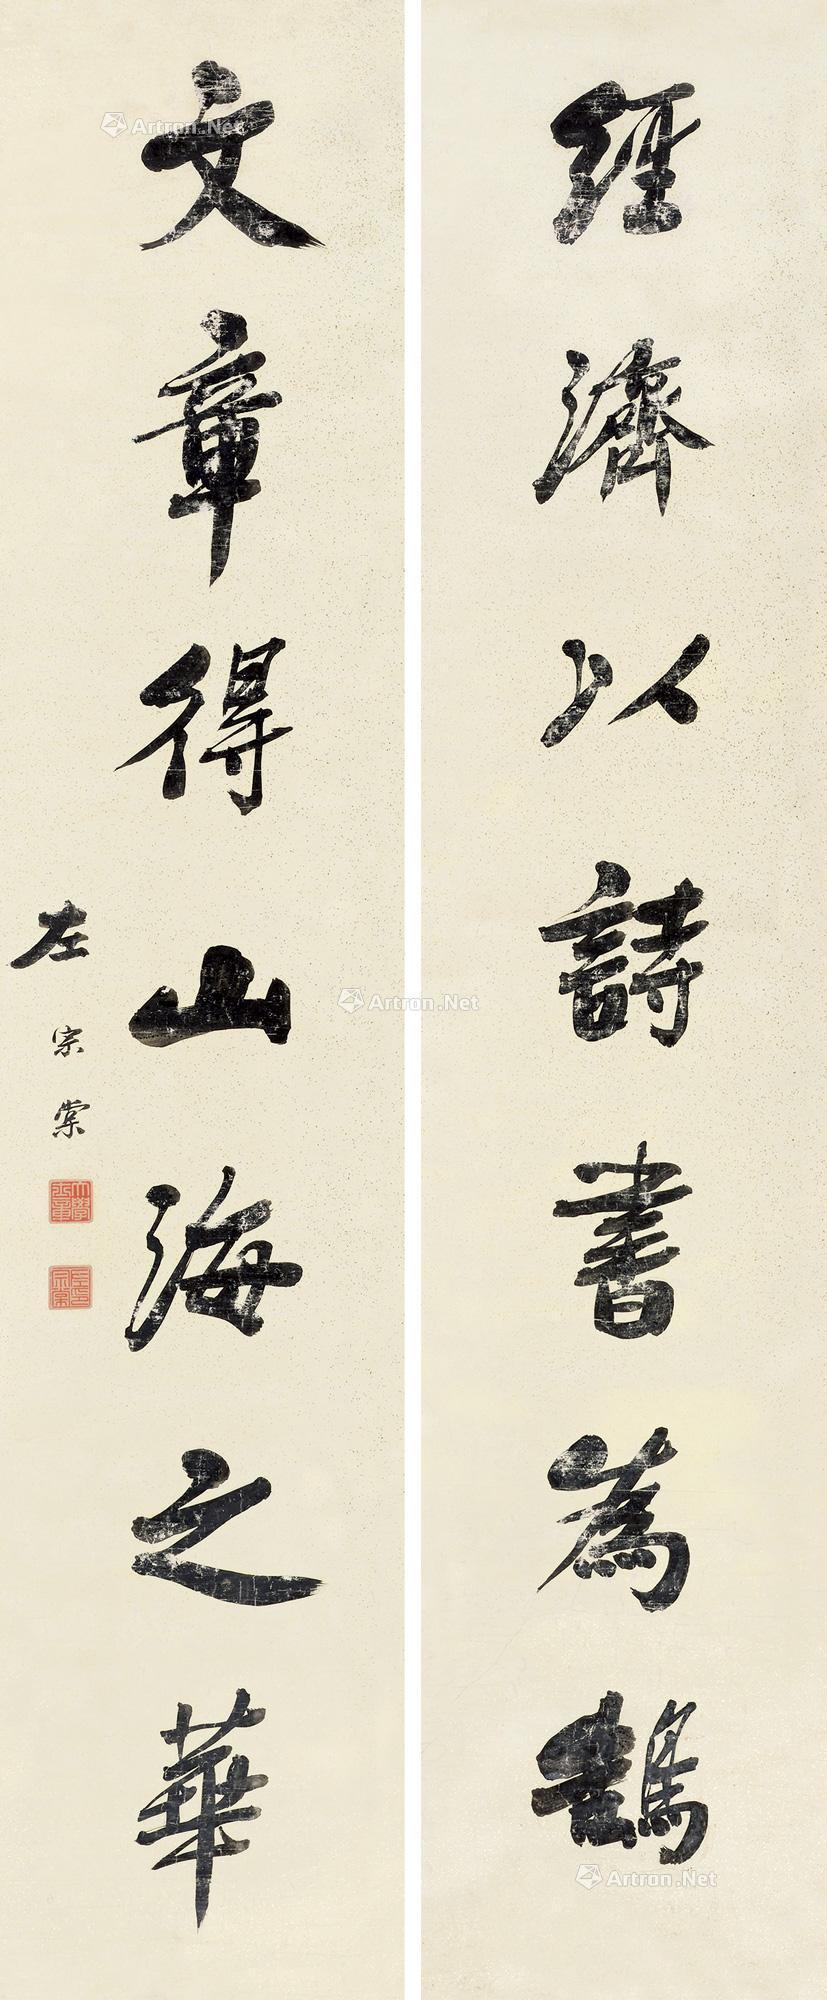 經濟以詩書為鵠
文章得山海之華
左宗棠
大學士章
左宗棠印
Artron.Net
Artron.Net
Artron.Net